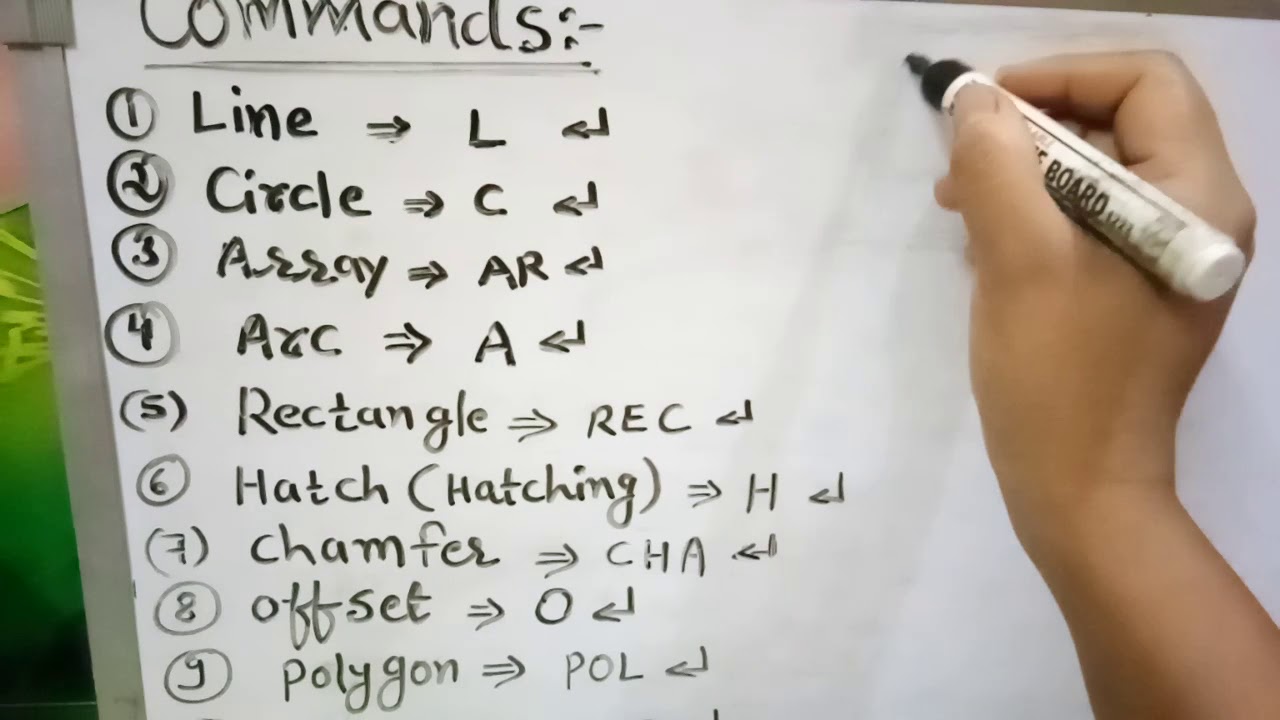 Commands:-
① Line ⇒ L ↵
② Circle ⇒ C ↵
③ Array ⇒ AR ↵
④ Arc ⇒ A ↵
(5) Rectangle ⇒ REC ↵
⑥ Hatch (Hatching) ⇒ H ↵
(7) Chamfer ⇒ CHA ↵
⑧ offset ⇒ O ↵
⑨ polygon ⇒ POL ↵
BOARD